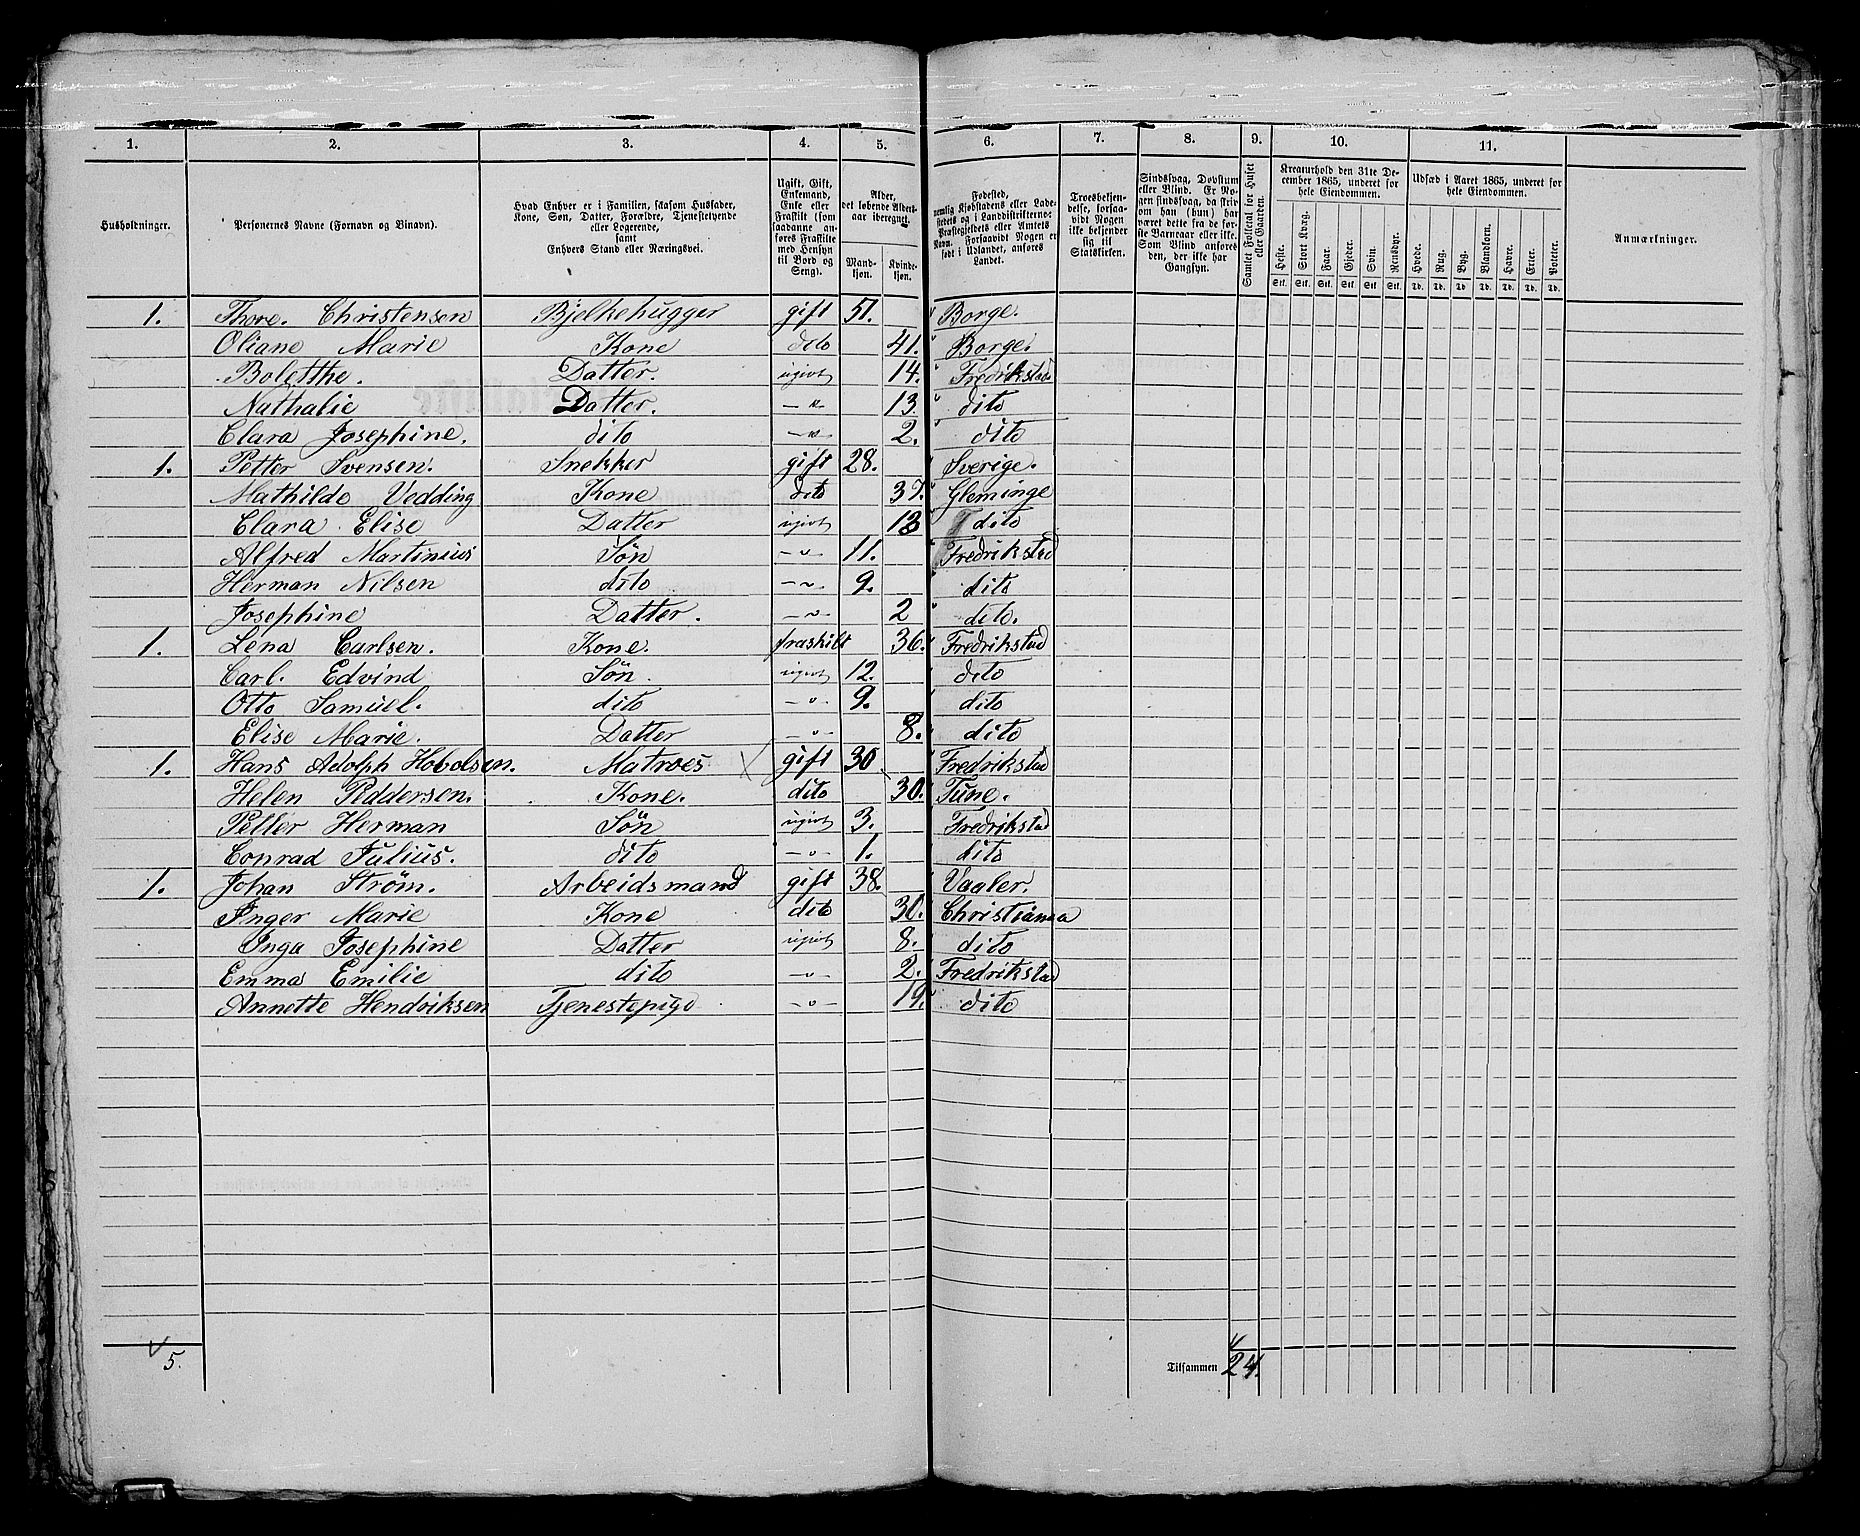 1. 2. 3. 4. 5. 6. 7. 8. 9. 10. 11.
Husholdninger.
Personernes Navne (Fornavn og Binavn).
Hvad Enhver er i Familien, saasom Husfader,
Kone, Søn, Datter, Forældre, Tjenestetyende
eller Logerende,
samt
Enhvers Stand eller Næringsvei.
Ugift, Gift,
Enkemand,
Enke eller
Fraskilt (som
saadanne an-
føres Fraskilte
med Hensyn
til Bord og
Seng).
Alder,
det løbende Alders-
aar iberegnet.
Mand-
kjøn.
Kvinde-
kjøn.
Fødested,
nemlig Kjøbstadens eller Lade-
stedets og i Landdistrikterne
Præstegjeldets eller Amtets
Navn. Forsaavidt Nogen er
født i Udlandet, anføres
Landet.
Troesbekjen-
delse, forsaa-
vidt Nogen
ikke bekjender
sig til
Statskirken.
Sindssvag, Døvstum
eller Blind. Er No-
gen sindssvag, da skriv
om han (hun) har
været dette fra de før-
ste Barneaar eller ikke.
Som Blind anføres
den, der ikke har
Gangsyn.
Samlet Folketal for Huset
eller Gaarden.
Kreaturhold den 31te De-
cember 1865, underet for
hele Eiendommen.
Heste. Stort Kvæg. Faar. Gjeder. Svin. Rensdyr.
Stk. Stk. Stk. Stk. Stk. Stk.
Udsæd i Aaret 1865, underet for
hele Eiendommen.
Hvede. Rug. Byg. Blandkorn. Havre. Erter. Poteter.
Td. Td. Td. Td. Td. Td. Td.
Anmærkninger.
1. Thore. Christensen Bjelkehugger gift 51. Borge.
Oliane Marie Kone dito 41. Borge.
Bolétthe. Datter. ugivt 14. Fredrikstad
Nathalie Datter. —"— 13. dito
Clara Josephine. dito —"— 2. dito
1. Petter Svensen. Snekker gift 28. Sverige.
Mathilde Vedding Kone dito 37. Gleminge
Clara Elise Datter ugivt 13 dito
Alfred Martinius Søn —"— 11. Fredrikstad
Herman Nilsen dito —"— 9. dito
Josephine Datter. —"— 2 dito.
1. Lena Carlsen. Kone. fraskilt 36. Fredrikstad
Carl. Edvind Søn. ugivt 12. dito
Otto Samuel. dito —"— 9. dito
Elise Marie. Datter —"— 8. dito
1. Hans Adolph Hobolsen. Matroes gift 30 Fredrikstad
Helen Peddersen. Kone. dito 30. Tune.
Petter Herman Søn ugivt 3. Fredrikstad
Conrad Julius. dito —"— 1. dito
1. Johan Strøm. Arbeidsmand gift 38. Vaaler.
Inger Marie Kone dito 30. Christiania
Inga Josephine Datter ugivt 8. dito
Emma Emilie dito —"— 2. Fredrikstad
Annette Hendriksen Tjenestepige —"— 19. dito
5. Tilsammen 24.